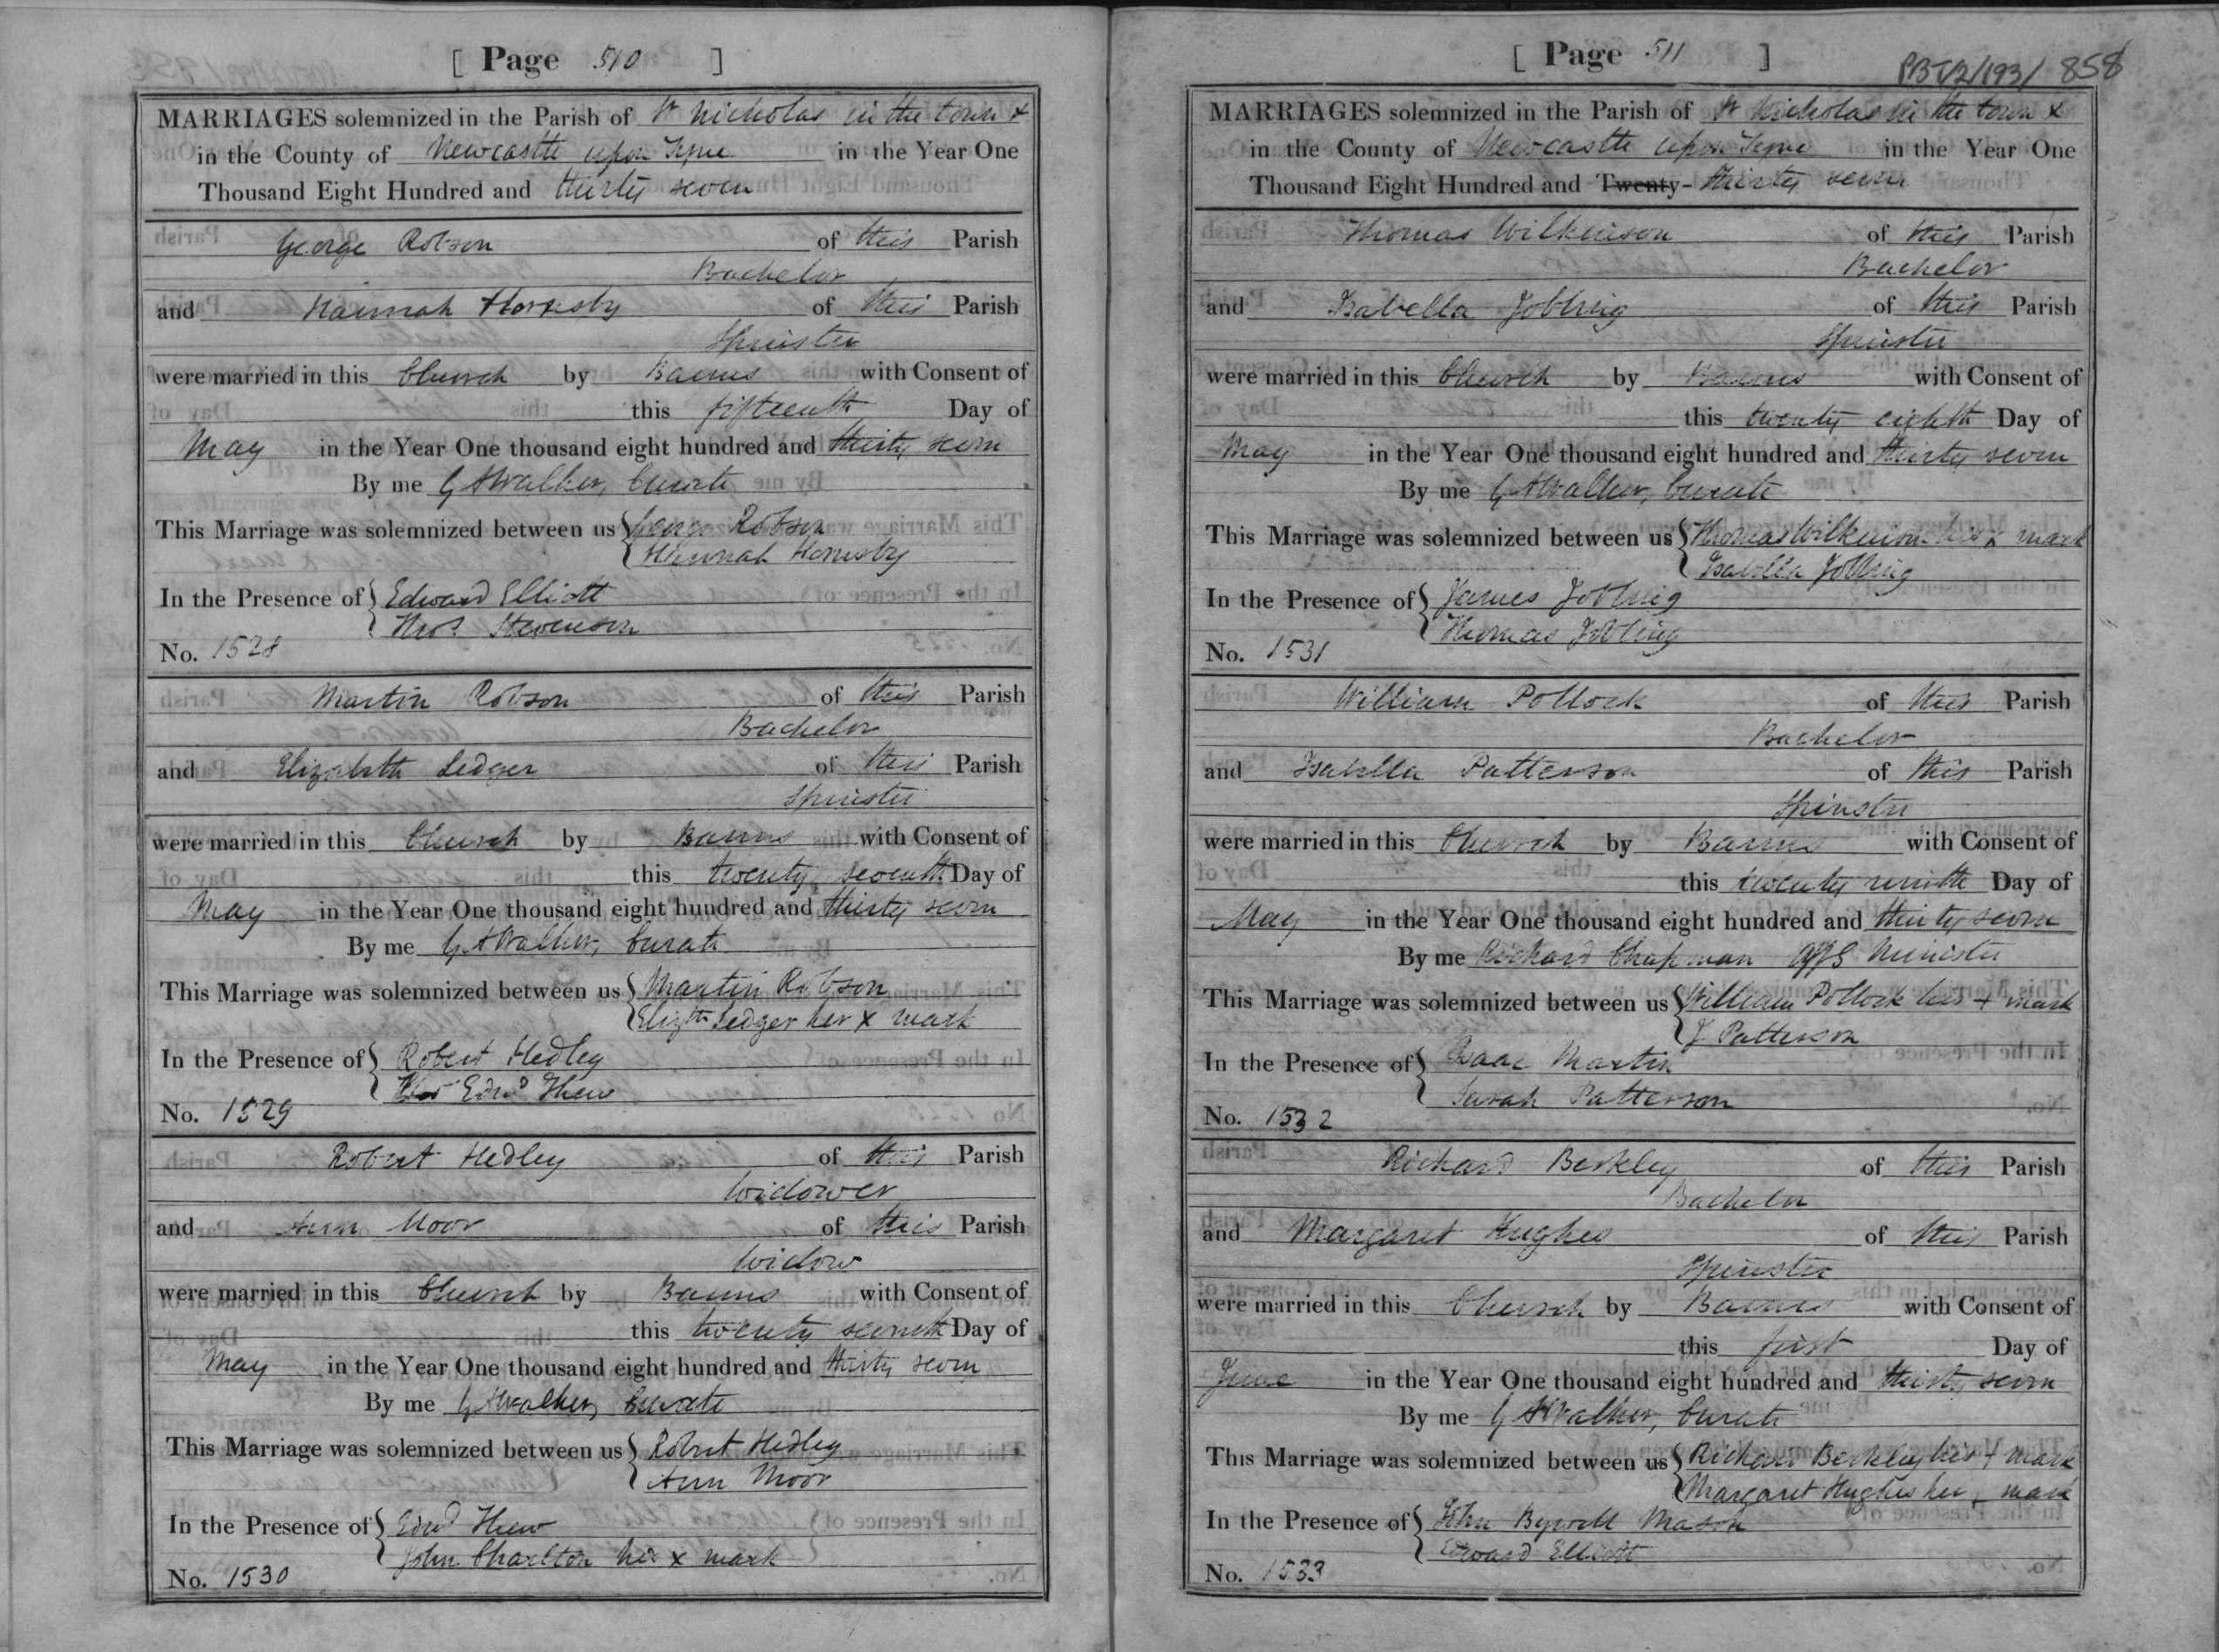 [ Page 510 ]
MARRIAGES solemnized in the Parish of St Nicholas in the town &
in the County of Newcastle upon Tyne in the Year One
Thousand Eight Hundred and thirty seven
George Robson of this Parish
Bachelor
and Hannah Hornsby of this Parish
Spinster
were married in this Church by Banns with Consent of
this fifteenth Day of
May in the Year One thousand eight hundred and thirty seven
By me G A Walker, Curate
This Marriage was solemnized between us { George Robson
Hannah Hornsby
In the Presence of { Edward Elliott
Thos. Stevenson
No. 1528
Martin Robson of this Parish
Bachelor
and Elizabeth Ledger of this Parish
Spinster
were married in this Church by Banns with Consent of
this twenty seventh Day of
May in the Year One thousand eight hundred and thirty seven
By me G A Walker, Curate
This Marriage was solemnized between us { Martin Robson
Elizth Ledger her x mark
In the Presence of { Robert Hedley
Edwd Thew
No. 1529
Robert Hedley of this Parish
Widower
and Ann Moor of this Parish
Widow
were married in this Church by Banns with Consent of
this twenty seventh Day of
May in the Year One thousand eight hundred and thirty seven
By me G A Walker, Curate
This Marriage was solemnized between us { Robert Hedley
Ann Moor
In the Presence of { Edwd Thew
John Charlton his x mark
No. 1530
[ Page 511 ]
858
MARRIAGES solemnized in the Parish of St Nicholas in the town &
in the County of Newcastle upon Tyne in the Year One
Thousand Eight Hundred and Twenty- thirty seven
Thomas Wilkinson of this Parish
Bachelor
and Isabella Jobling of this Parish
Spinster
were married in this Church by Banns with Consent of
this twenty eighth Day of
May in the Year One thousand eight hundred and thirty seven
By me G A Walker, Curate
This Marriage was solemnized between us { Thomas Wilkinson his x mark
Isabella Jobling
In the Presence of { James Jobling
Thomas Jobling
No. 1531
William Pollock of this Parish
Bachelor
and Isabella Patterson of this Parish
Spinster
were married in this Church by Banns with Consent of
this twenty ninth Day of
May in the Year One thousand eight hundred and thirty seven
By me Richard Chapman Offg Minister
This Marriage was solemnized between us { William Pollock his + mark
I Patterson
In the Presence of { Isaac Martin
Sarah Patterson
No. 1532
Richard Berkley of this Parish
Bachelor
and Margaret Hughes of this Parish
Spinster
were married in this Church by Banns with Consent of
this first Day of
June in the Year One thousand eight hundred and thirty seven
By me G A Walker, Curate
This Marriage was solemnized between us { Richard Berkley his + mark
Margaret Hughes her + mark
In the Presence of { John Bywell Mason
Edward Elliott
No. 1533